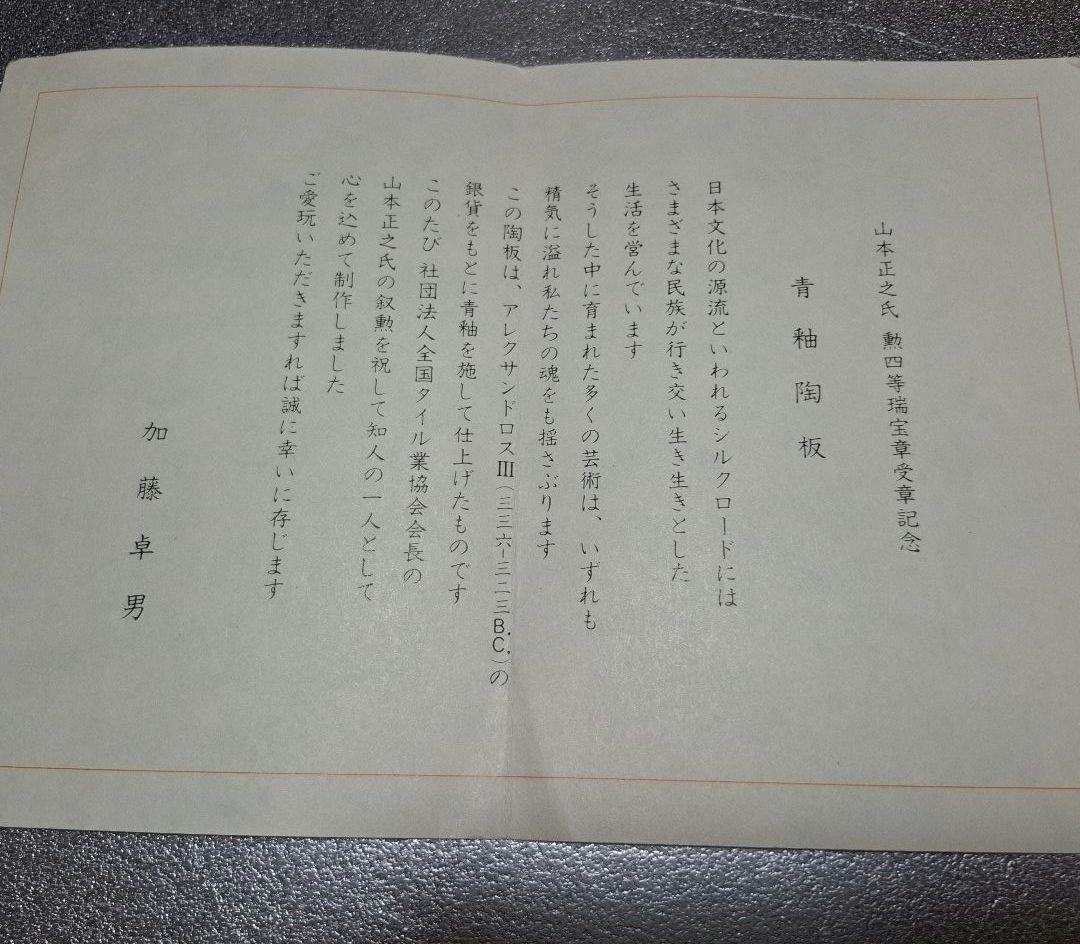 山本正之氏 勲四等瑞宝章受章記念
青釉陶板
日本文化の源流といわれるシルクロードには
さまざまな民族が行き交い生き生きとした
生活を営んでいます
そうした中に育まれた多くの芸術は、いずれも
精気に溢れ私たちの魂をも揺さぶります
この陶板は、アレクサンドロスⅢ(三三六−三二三B.C.)の
銀貨をもとに青釉を施して仕上げたものです
このたび 社団法人全国タイル業協会会長の
山本正之氏の叙勲を祝して知人の一人として
心を込めて制作しました
ご愛玩いただきますれば誠に幸いに存じます
加藤卓男